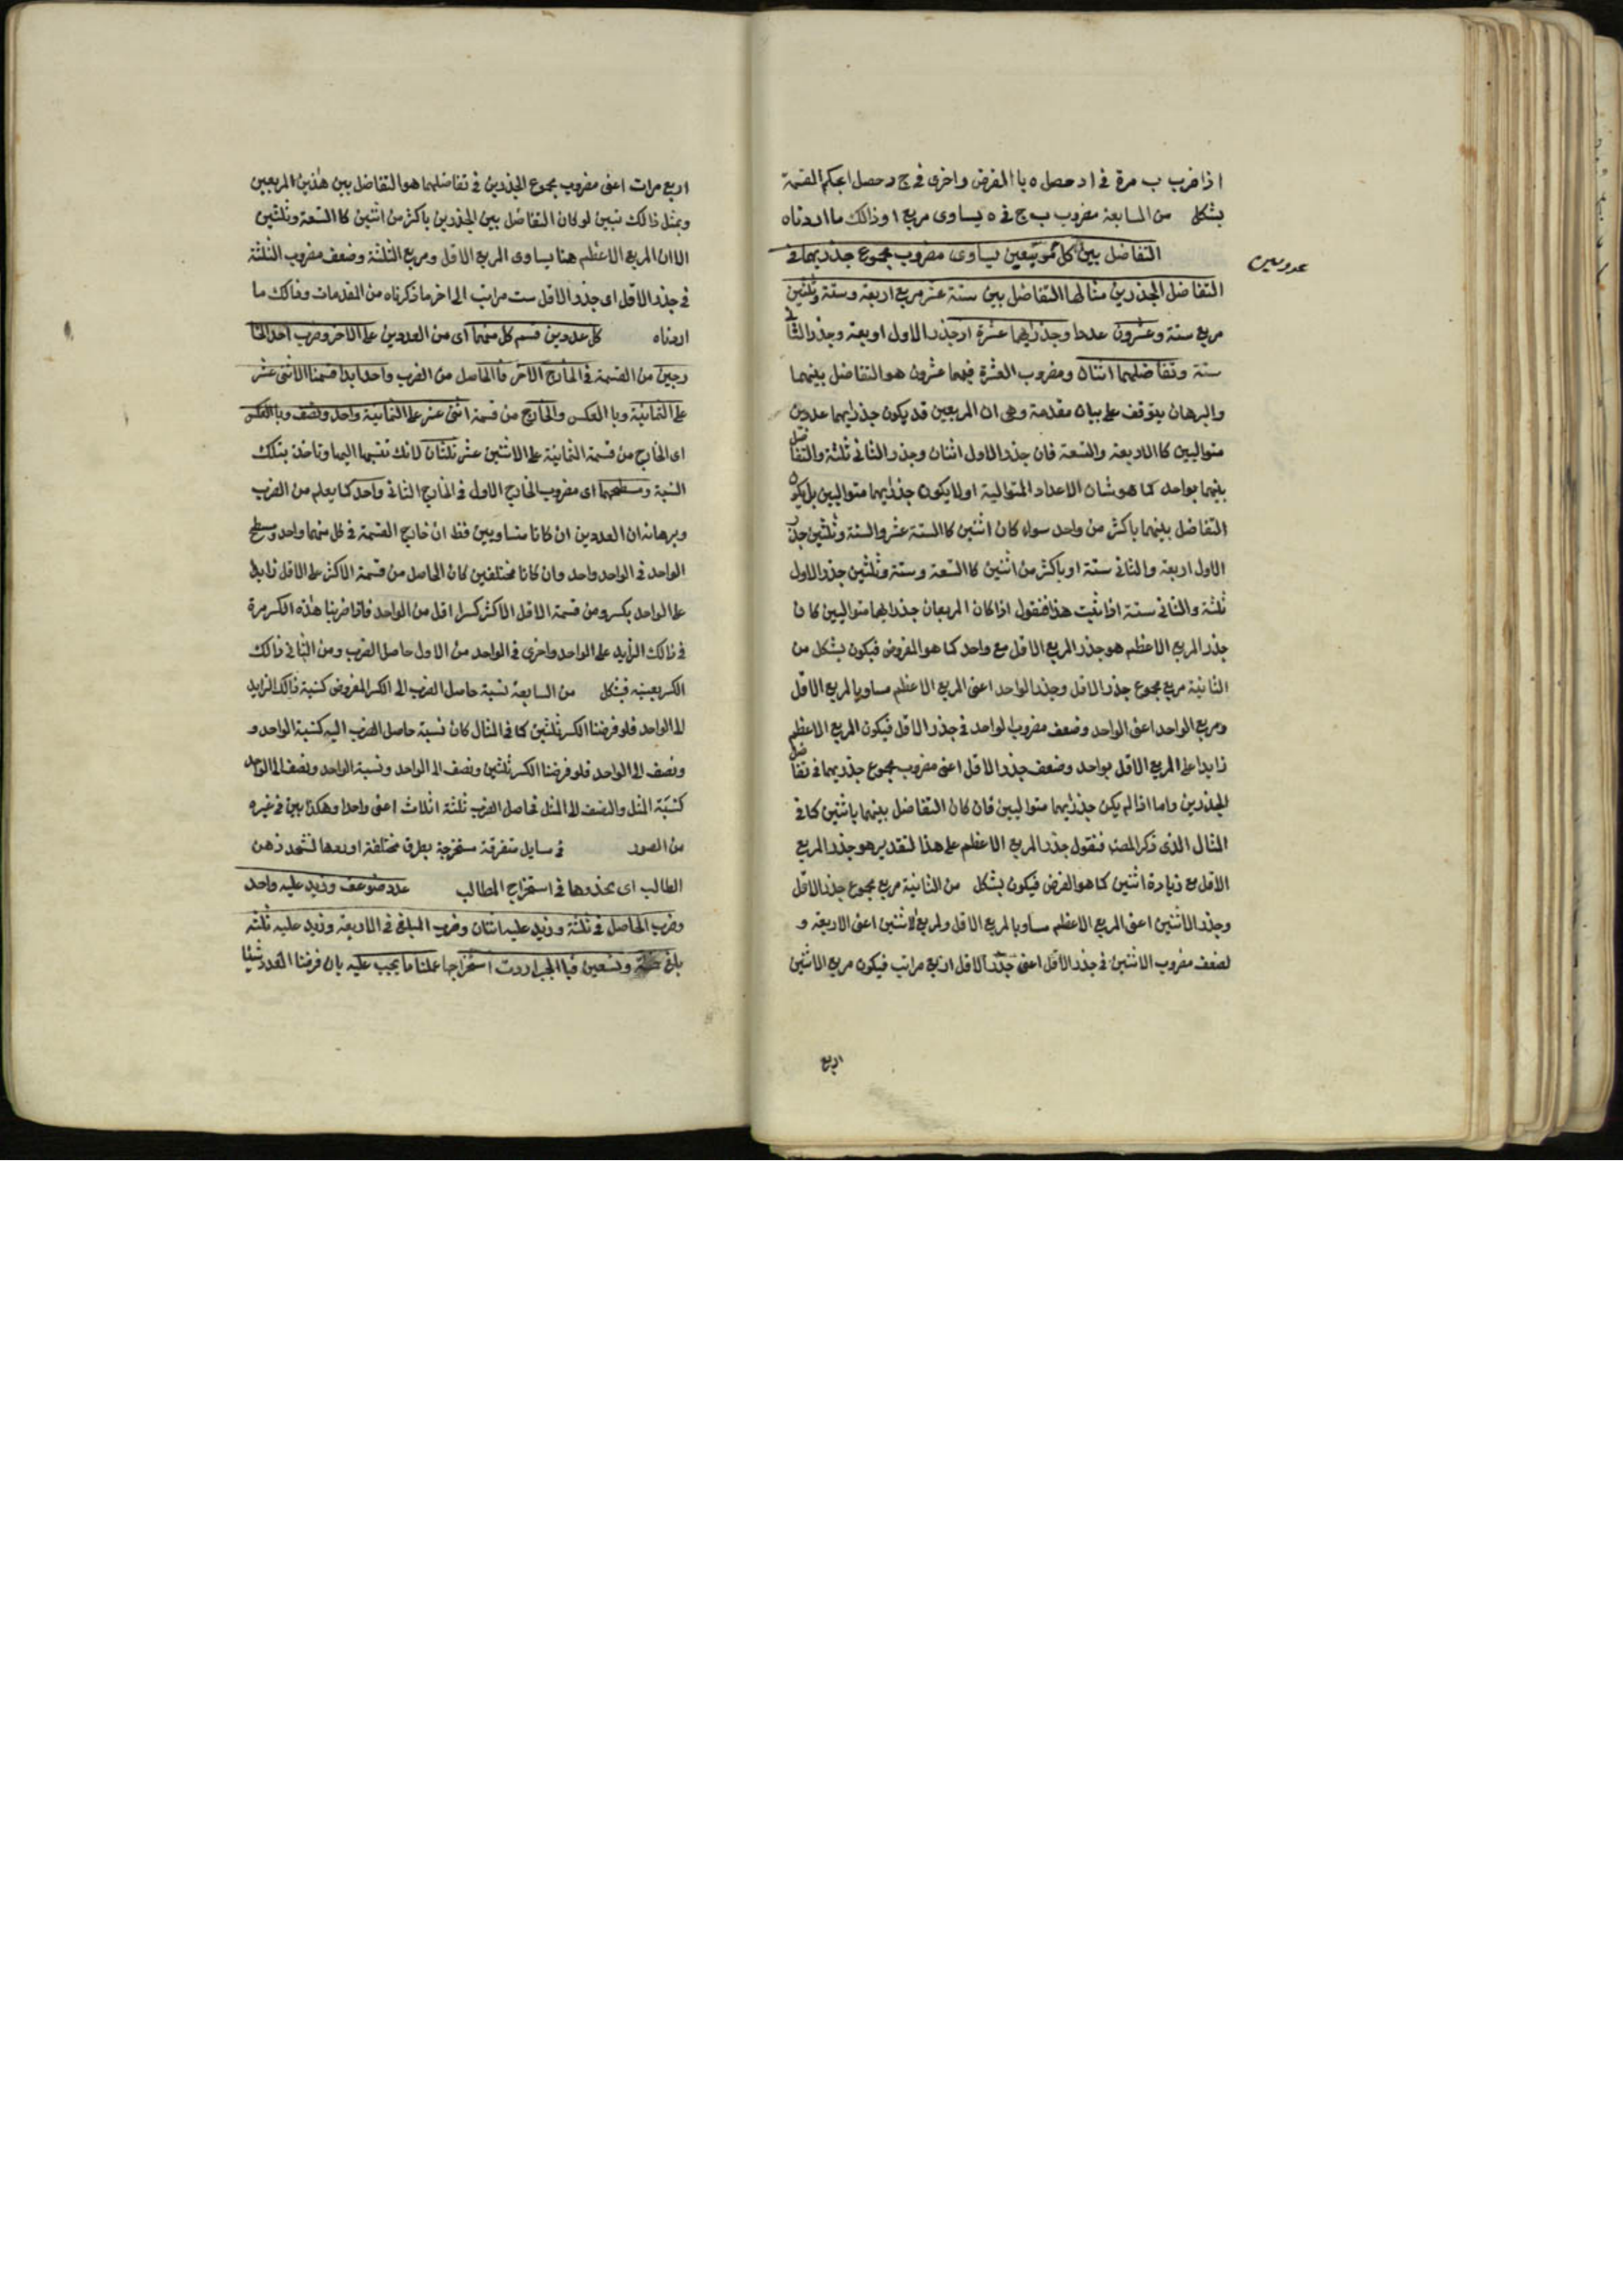 اذا ضرب ب مرة في ا د حصل ه با الفرض واخرى في ج د حصل ا بحكم القسمة
بشكل من السابعة مضروب ب ج في ه يساوى مربع ا وذالك ما اردناه
التفاضل بين كل مربعين يساوى مضروب مجموع جذريهما في
عددين
التفاضل الجذرين مثالها التفاضل بين ستة عشر مربع اربعة وستة وثلثين
مربع ستة وعشرون عددا وجذراهما عشرة اذ جذر الاول اربعة وجذر الثانى
ستة وتفاضلهما اثنان ومضروب العشرة فيهما عشرون هو التفاضل بينهما
والبرهان يتوقف على بيان مقدمة وهى ان المربعين قد يكون جذراهما عددين
متواليين كا الاربعة والتسعة فان جذر الاول اثنان وجذر الثانى ثلثة والتفاضل
بينهما بواحد كما هو شان الاعداد المتوالية او لا يكون جذراهما متواليين بل يكون
التفاضل بينهما باكثر من واحد سواء كان اثنين كا الستة عشر والستة وثلثين جذر
الاول اربعة والثانى ستة او باكثر من اثنين كا التسعة وستة وثلثين جذر الاول
ثلثة والثانى ستة اذا ثبت هذا فنقول اذا كان المربعان جذراهما متواليين كان
جذر المربع الاعظم هو جذر المربع الاقل مع واحد كما هو المفروض فيكون بشكل من
الثانية مربع مجموع جذر الاقل وجذر الواحد اعنى المربع الاعظم مساويا لمربع الاقل
ومربع الواحد اعنى الواحد وضعف مضروب الواحد في جذر الاقل فيكون المربع الاعظم
زايدا على المربع الاقل بواحد وضعف جذر الاقل اعنى مضروب مجموع جذريهما في تفاضل
الجذرين واما اذا لم يكن جذراهما متواليين فان كان التفاضل بينهما باثنين كما في
المثال الذى ذكر المصنف فنقول جذر المربع الاعظم على هذا التقدير هو جذر المربع
الاقل مع زيادة اثنين كما هو الفرض فيكون بشكل من الثانية مربع مجموع جذر الاقل
وجذر الاثنين اعنى المربع الاعظم مساويا لمربع الاقل ولمربع الاثنين اعنى الاربعة و
لضعف مضروب الاثنين في جذر الاقل اعنى جذر الاقل اربع مراتب فيكون مربع الاثنين
اربع
اربع مرات اعنى مضروب مجموع الجذرين في تفاضلهما هو التفاضل بين هذين المربعين
وبمثل ذالك تبين لو كان التفاضل بين الجذرين باكثر من اثنين كا التسعة وثلثين
الا ان المربع الاعظم هنا يساوى المربع الاقل ومربع الثلثة وضعف مضروب الثلثة
في جذر الاقل اى جذر الاقل ست مراتب الى اخر ما ذكرناه من المقدمات وذالك ما
اردناه كل عددين قسم كل منهما اى من العددين على الآخر وضرب احد الخا
رجين من القسمة في الخارج الآخر فا الحاصل من الضرب واحد ابدا قسمنا الاثنى عشر
على الثمانية وبا العكس والخارج من قسمة اثنى عشر على الثمانية واحد ونصف وبا العكس
اى الخارج من قسمة الثمانية على الاثنين عشر ثلثان لانك تنسبها اليها وتاخذ بتلك
النسبة ومسطحهما اى مضروب الخارج الاول في الخارج الثانى واحد كما يعلم من الضرب
وبرهانه ان العددين ان كانا متساويين فظ ان خارج القسمة في كل منهما واحد ومسطح
الواحد في الواحد واحد وان كانا مختلفين كان الحاصل من قسمة الاكثر على الاقل زايدا
على الواحد بكسر ومن قسمة الاقل الاكثر كسرا اقل من الواحد فاذا ضربنا هذه الكسر مرة
في ذالك الزايد على الواحد واخرى في الواحد من الاول حاصل الضرب ومن الثانى ذالك
الكسر بعينه فبشكل من السابعة نسبة حاصل الضرب الى الكسر المفروض كنسبة ذالك الزايد
الى الواحد فلو فرضنا الكسر ثلثين كما في المثال كان نسبة حاصل الضرب اليه كنسبة الواحد و
ونصف الى الواحد فلو فرضنا الكسر ثلثين ونصف الى الواحد ونسبة الواحد ونصف الى الواحد
كنسبة المثل والنصف الى المثل فحاصل الضرب ثلثة اثلاث اعنى واحدا وهكذا بين في غيره
من الصور في مسايل متفرقة مستخرجة بطرق مختلفة اوردها لتشحذ ذهن
الطالب اى يحذوها في استخراج المطالب عدد ضوعف وزيد عليه واحد
وضرب الحاصل في ثلثة وزيد عليه اثنان وضرب المبلغ في الاربعة وزيد عليه ثلثة
بلغ خمسة وتسعين فبا الجبر اردت استخراجها عملنا ما يجب عليه بان فرضنا العدد شيئا